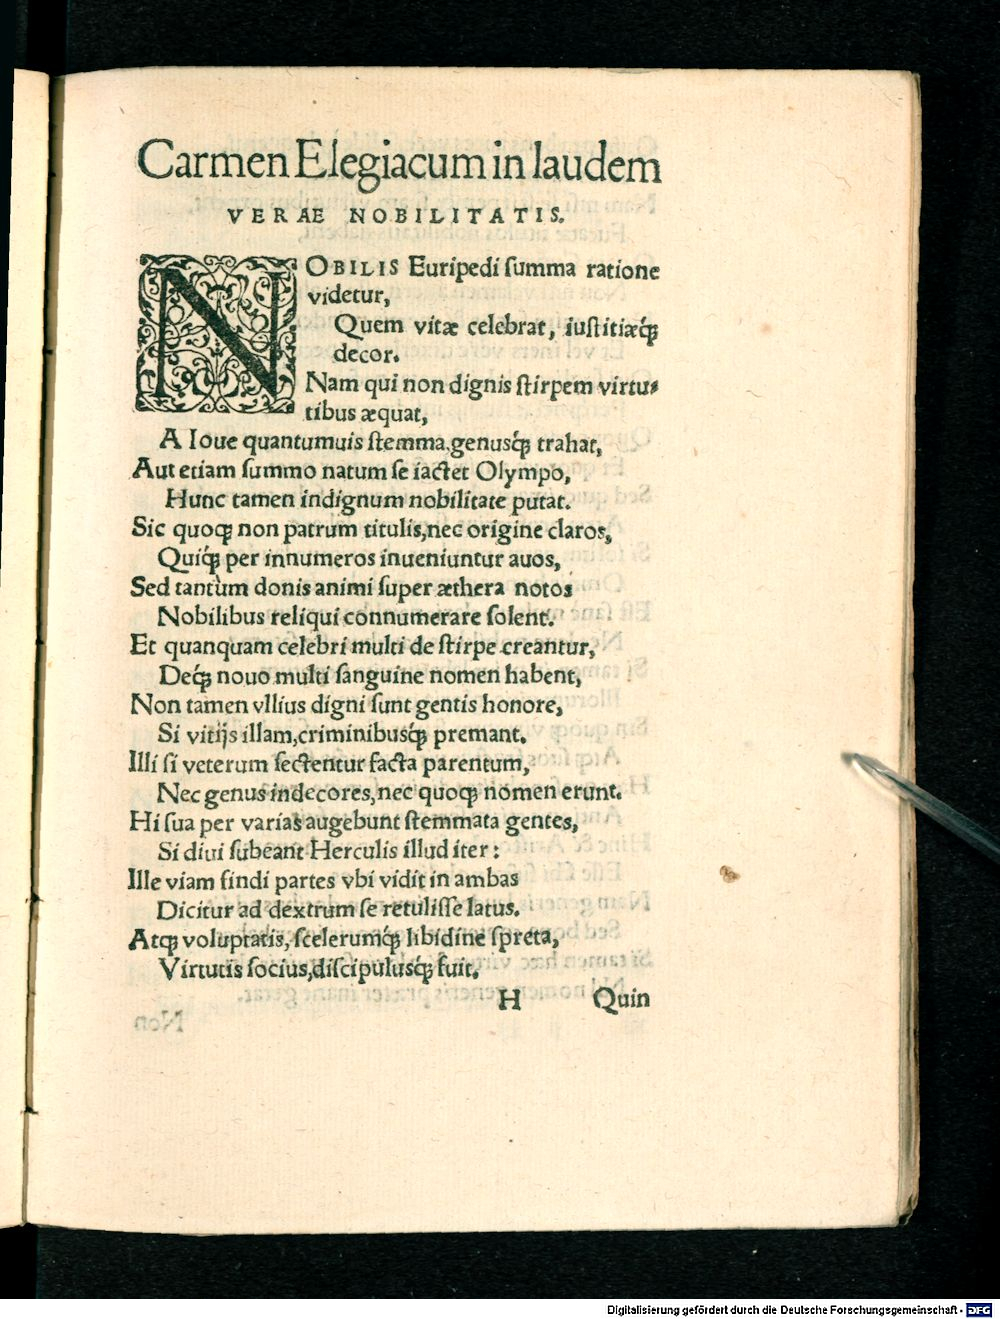 Carmen Elegiacum in laudem
VERAE NOBILITATIS.
NOBILIS Euripedi ſumma ratione
videtur,
Quem vitæ celebrat, iuſtitiæq́ꝫ
decor.
Nam qui non dignis ſtirpem virtu⸗
tibus æquat,
A Ioue quantumuis ſtemma,genusq́ꝫ trahat,
Aut etiam ſummo natum ſe iactet Olympo,
Hunc tamen indignum nobilitate putat.
Sic quoqꝫ non patrum titulis,nec origine claros,
Quiq́ꝫ per innumeros inueniuntur auos,
Sed tantùm donis animi ſuper æthera notos
Nobilibus reliqui connumerare ſolent.
Et quanquam celebri multi de ſtirpe creantur,
Deq́ꝫ nouo multi ſanguine nomen habent,
Non tamen vllius digni ſunt gentis honore,
Si vitijs illam,criminibusq́ꝫ premant.
Illi ſi veterum ſectentur facta parentum,
Nec genus indecores,nec quoqꝫ nomen erunt.
Hi ſua per varias augebunt ſtemmata gentes,
Si diui ſubeant Herculis illud iter:
Ille viam findi partes vbi vidit in ambas
Dicitur ad dextrum ſe retuliſſe latus.
Atqꝫ voluptatis, ſcelerumq́ꝫ libidine ſpreta,
Virtutis ſocius,diſcipulusq́ꝫ fuit.
H Quin
Digitalisierung gefördert durch die Deutsche Forschungsgemeinschaft - DFG